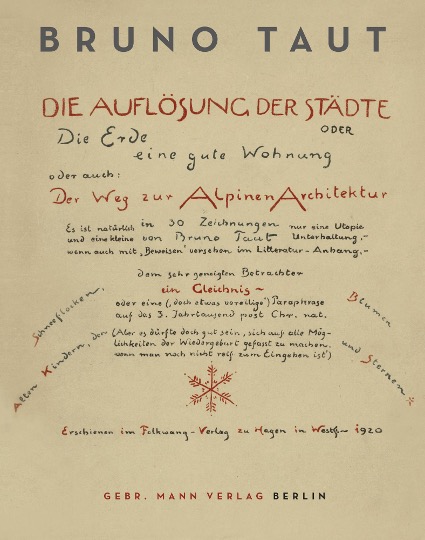 BRUNO TAUT
DIE AUFLÖSUNG DER STÄDTE
ODER
Die Erde
eine gute Wohnung
oder auch:
Der Weg zur Alpinen Architektur
Es ist natürlich in 30 Zeichnungen nur eine Utopie
und eine kleine von Bruno Taut Unterhaltung,-
wenn auch mit „Beweisen" versehen im Litteratur-Anhang,-
dem sehr geneigten Betrachter
ein Gleichnis ~
oder eine (, doch etwas voreilige') Paraphrase
auf das 3. Jahrtausend post Chr. nat.
(Aber es dürfte doch gut sein, sich auf alle Mög-
lichkeiten der Wiedergeburt gefasst zu machen,
wenn man noch nicht reif zum Eingehen ist')
Allen Kindern, den Schneeflocken,
Blumen und Sternen
Erschienen im Folkwang-Verlag zu Hagen in Westf. 1920
GEBR. MANN VERLAG BERLIN